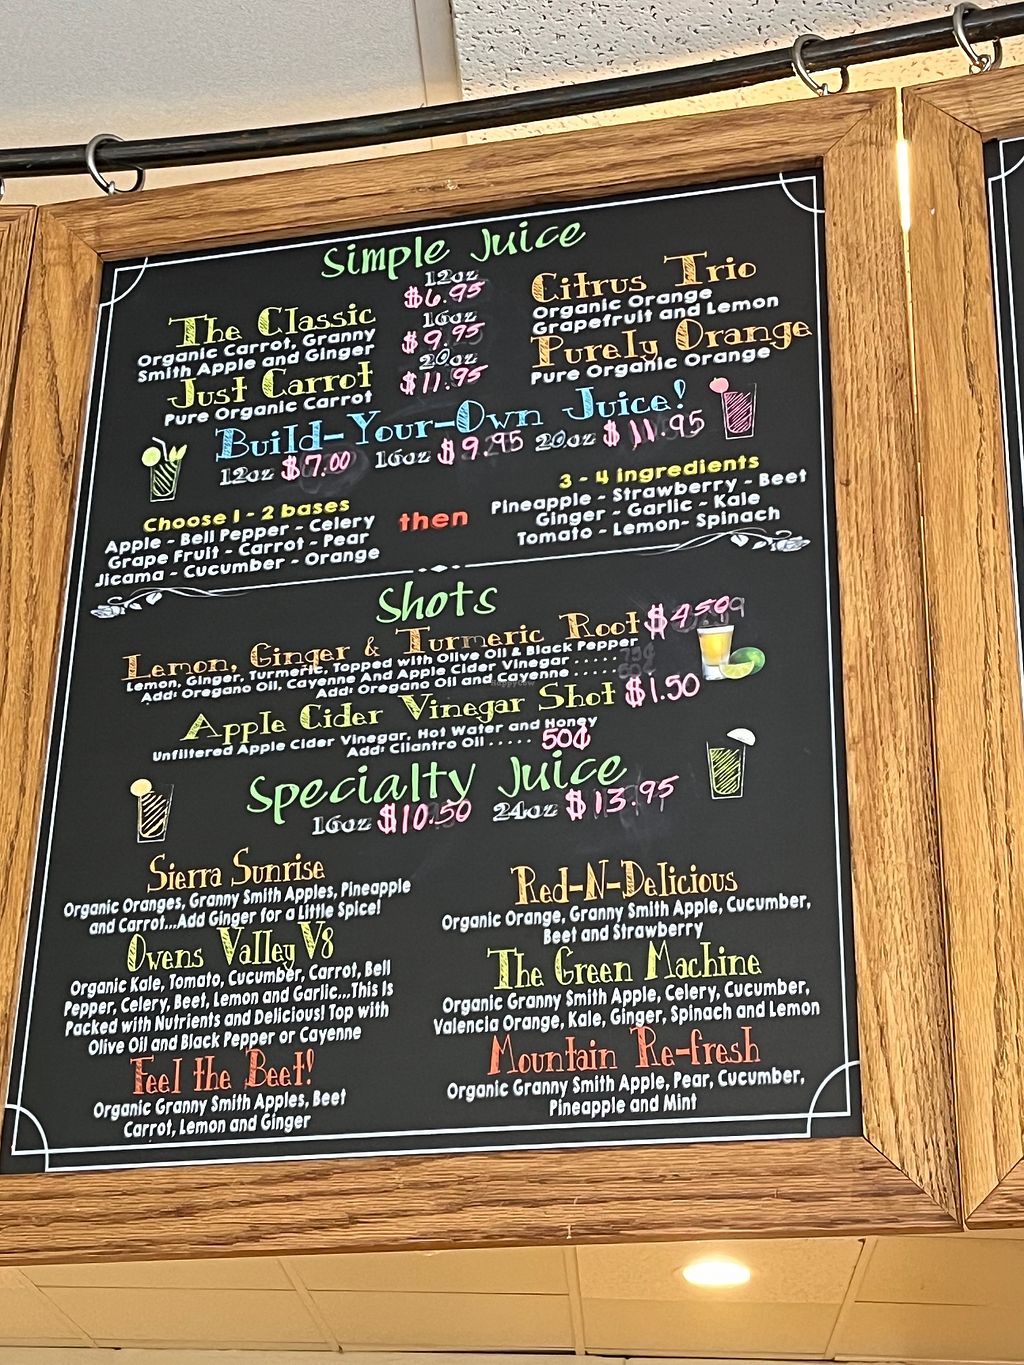 Simple Juice
12oz
$6.95
16oz
$9.95
20oz
$11.95
The Classic
Organic Carrot, Granny
Smith Apple and Ginger
Just Carrot
Pure Organic Carrot
Citrus Trio
Organic Orange
Grapefruit and Lemon
Purely Orange
Pure Organic Orange
Build-Your-Own Juice!
12oz $7.00 16oz $9.95 20oz $11.95
Choose 1 - 2 bases
Apple - Bell Pepper - Celery
Grape Fruit - Carrot - Pear
Jicama - Cucumber - Orange
then
3 - 4 ingredients
Pineapple - Strawberry - Beet
Ginger - Garlic - Kale
Tomato - Lemon- Spinach
Shots
Lemon, Ginger & Turmeric Root $4.50
Lemon, Ginger, Turmeric, Topped with Olive Oil & Black Pepper
Add: Oregano Oil, Cayenne And Apple Cider Vinegar .....
Add: Oregano Oil and Cayenne .....
Apple Cider Vinegar Shot $1.50
Unfiltered Apple Cider Vinegar, Hot Water and Honey
Add: Cilantro Oil ..... 50¢
Specialty Juice
16oz $10.50 24oz $13.95
Sierra Sunrise
Organic Oranges, Granny Smith Apples, Pineapple
and Carrot...Add Ginger for a Little Spice!
Owens Valley V8
Organic Kale, Tomato, Cucumber, Carrot, Bell
Pepper, Celery, Beet, Lemon and Garlic...This Is
Packed with Nutrients and Delicious! Top with
Olive Oil and Black Pepper or Cayenne
Feel the Beet!
Organic Granny Smith Apples, Beet
Carrot, Lemon and Ginger
Red-N-Delicious
Organic Orange, Granny Smith Apple, Cucumber,
Beet and Strawberry
The Green Machine
Organic Granny Smith Apple, Celery, Cucumber,
Valencia Orange, Kale, Ginger, Spinach and Lemon
Mountain Re-fresh
Organic Granny Smith Apple, Pear, Cucumber,
Pineapple and Mint